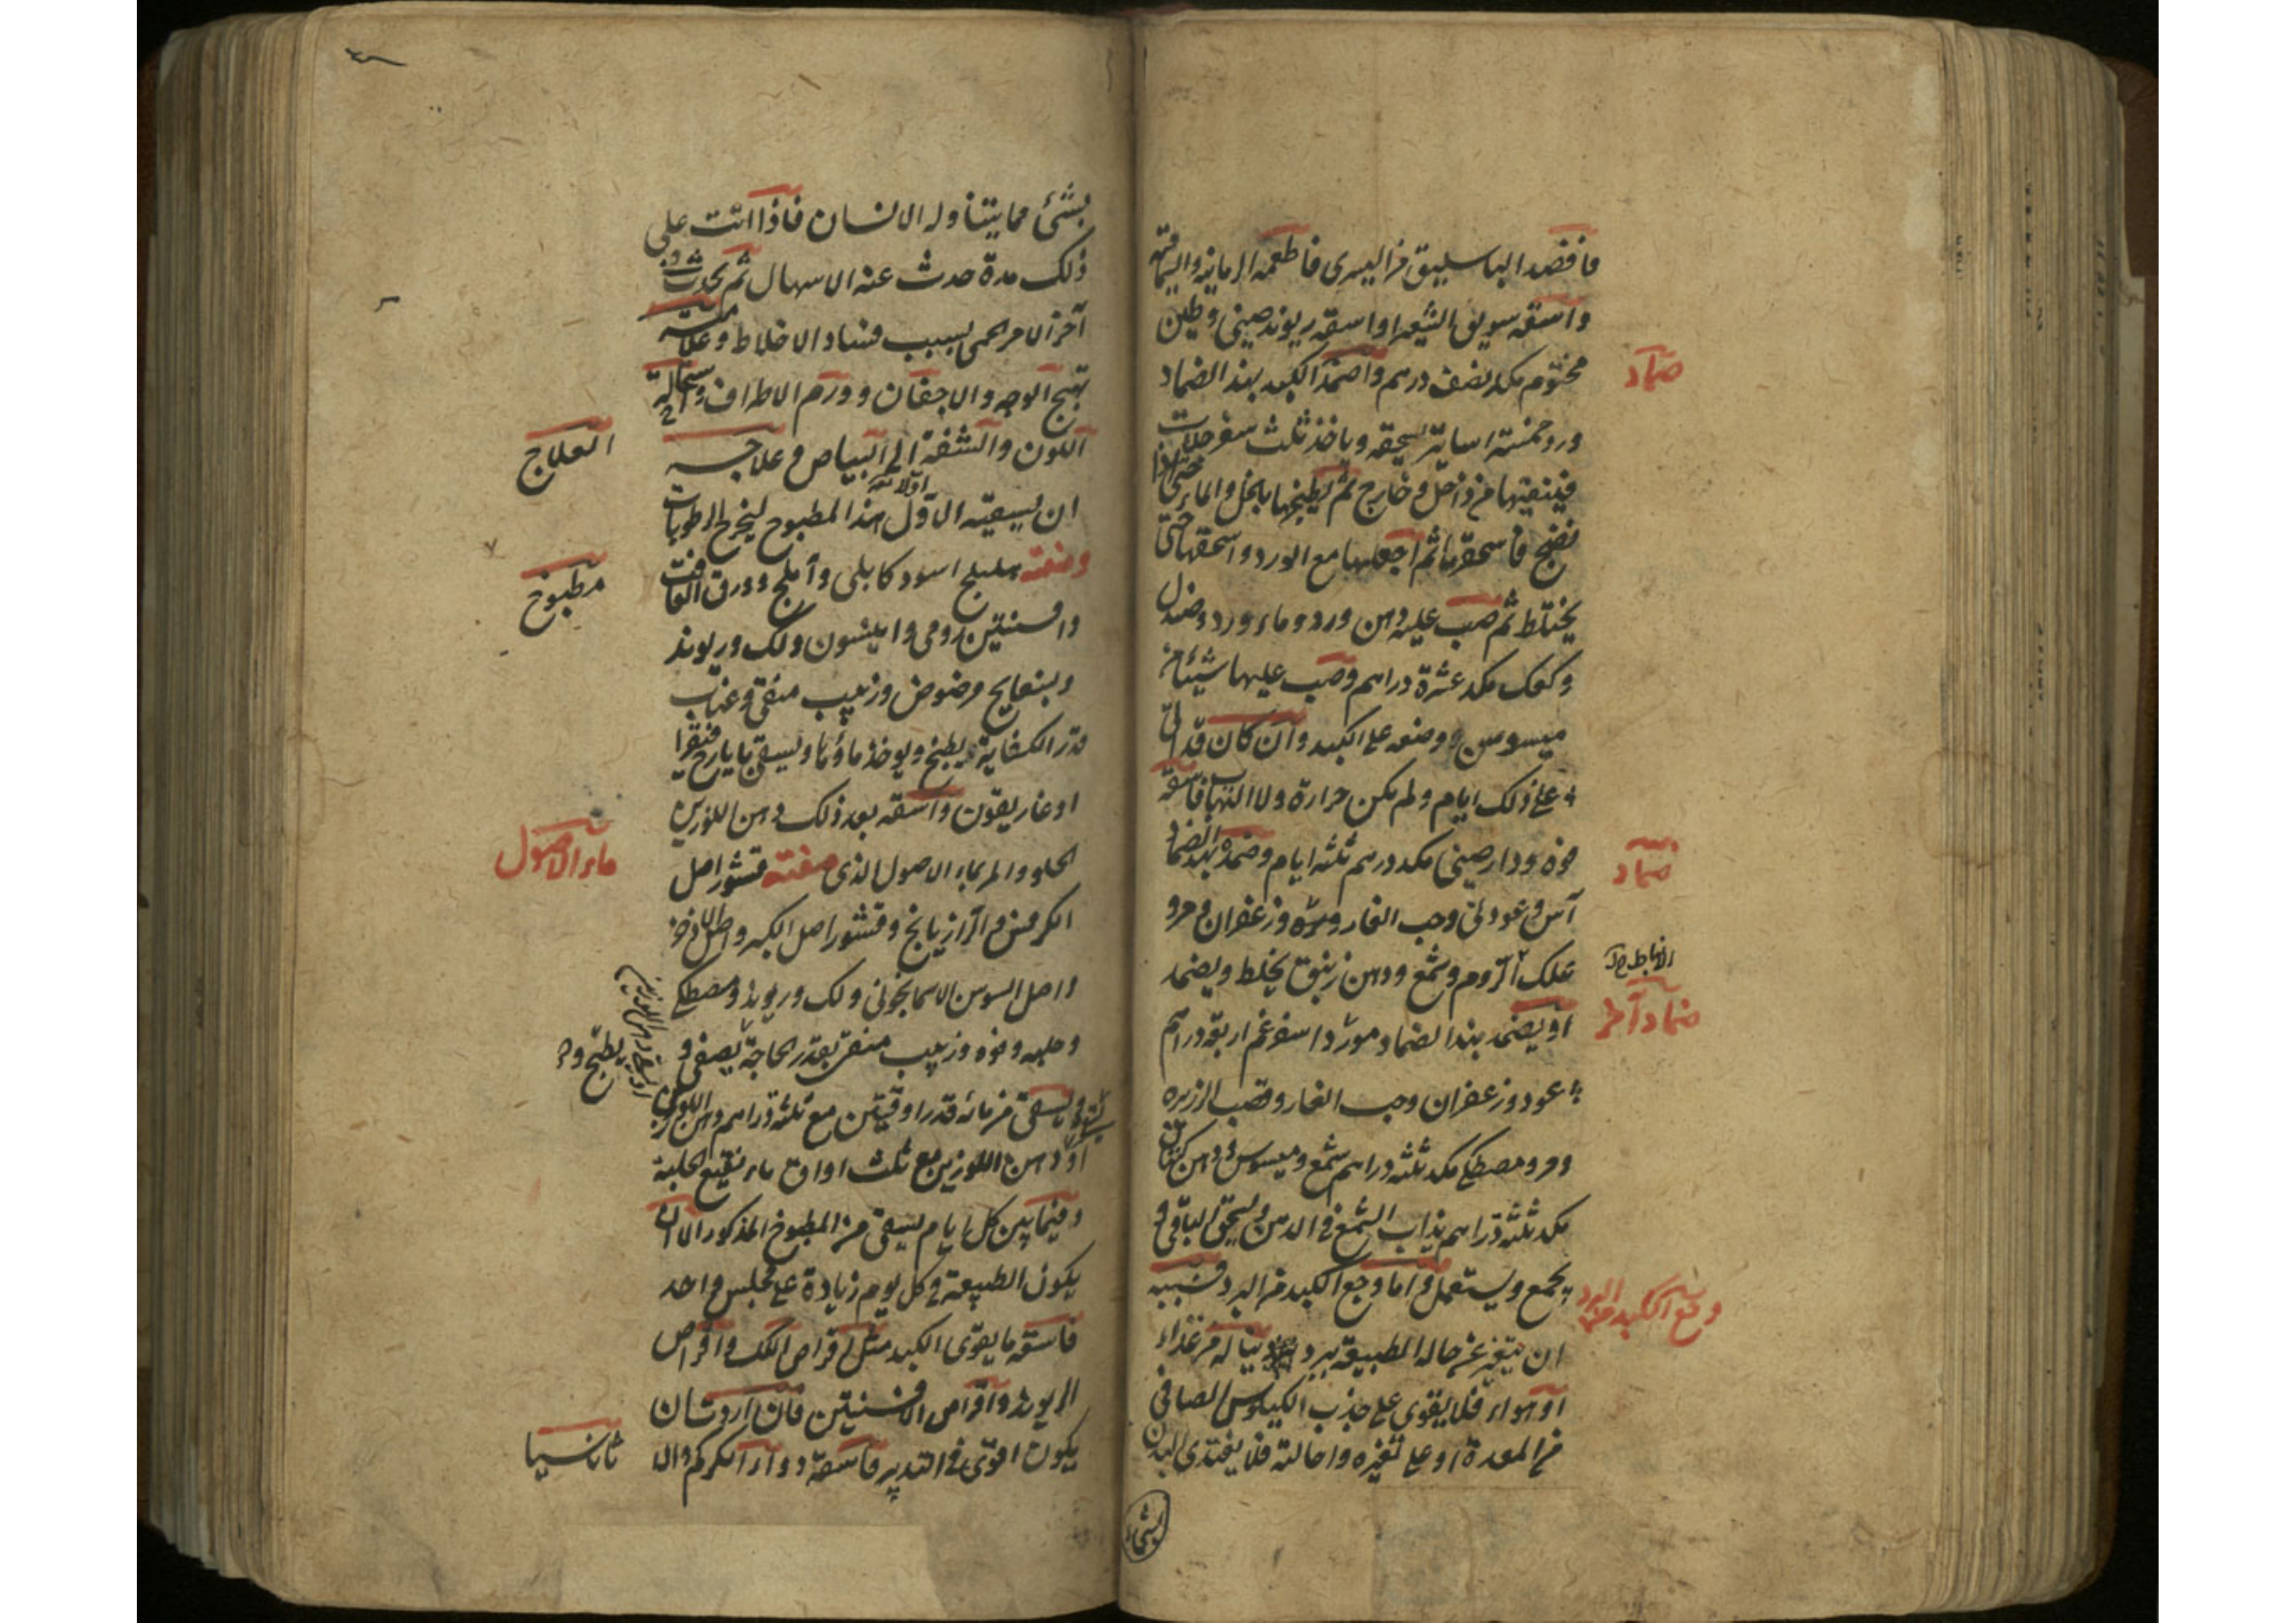 فافصد الباسليق من اليسرى فاطعمه الرمانية والسماقية
واسقه سويق الشعير او اسقه ريوند صينى وطين
مختوم مكد نصف درهم واضمد الكبد بهذا الضماد
ضماد
ورد خمسة اساتير يسحقه وياخذ ثلث سفرجلات
فينقيها من داخل وخارج ثم يطبخها بالخل والماء حتى اذا
نضج فاسحقها ثم اجعلها مع الورد واسحقها حتى
يختلط ثم صب عليه دهن ورد وماء ورد وصندل
وكعك مكد عشرة دراهم وصب عليها شيئا من
ميسوسن ووضعه على الكبد وان كان قد اتى
على ذلك ايام ولم يكن حرارة ولا التهاب فاسقه
فوه ودارصينى مكد درهم ثلثه ايام وضمده بهذا الضماد
ضماد
آس وعود نى وحب الغار ومرّه وزعفران ومرو
علك الروم وشمع ودهن زنبق يخلط ويضمد
الانباط
ضماد آخر
او يضمد بهذا الضماد مورد اسفرغم اربعة دراهم
عود وزعفران وحب الغار وقصب الزريره
ومر ومصطكى مكد ثلثه دراهم شمع وميسوسن ودهن كتان
مكد ثلثه دراهم يذاب الشمع فى الدهن ويسحق الباقى و
يجمع ويستعمل واما وجع الكبد من البرد فسببه
وجع الكبد من البرد
ان يتغير عن حاله الطبيعة ببرد يناله من غذاء
او هواء فلا يقوى على جذب الكيلوس الصافى
من المعدة او على تغيره واحالته فلا يغتذى البدن
بشئ
بشئ مما يتناوله الانسان فاذا اتت على
ذلك مدة حدث عنه الاسهال ثم يحدث فى
آخر الامر الحمى بسبب فساد الاخلاط وعلامته
تهبج الوجه والاجفان وورم الاطراف واستحالة
اللون والشفة الى البياض وعلاجه
العلاج
ان يسقيه الاول هذا المطبوخ ليخرج الرطوبات
اولا
وصفته هليلج اسود كابلى وأملج وورق الغافت
مطبوخ
وافسنتين رومى وانيسون ولك وريوند
وبسفايج مرضوض وزبيب منقى وعناب
قدر الكفاية يطبخ ويوخذ ماؤها ويسقى بايارج فيقرا
او غاريقون واسقه بعد ذلك دهن اللوزين
الحلو والمر بماء الاصول الذى صفته قشور اصل
ماء الاصول
الكرفس والرازيانج وقشور اصل الكبر واصل الاذخر
واصل السوسن الاسمانجونى ولك وريوند ومصطكى
وحلبه وفوه وزبيب منقى بقدر الحاجة يصفى و
يطبخ و
يسقى من مائه قدر اوقيتين مع ثلثة دراهم دهن اللوزين
او دهن اللوزين مع ثلث اواق ماء نقيع الحلبة
وفيما بين كل ايام يسقى من المطبوخ المذكور الا ان
يكون الطبيعة فى كل يوم زيادة على مجلس واحد
فاسقه ما يقوى الكبد مثل اقراص اللك واقراص
الريوند واقراص الافسنتين فان اردت ان
يكون اقوى فى التدبير فاسقه دواء الكركم والا
ثاناسيا